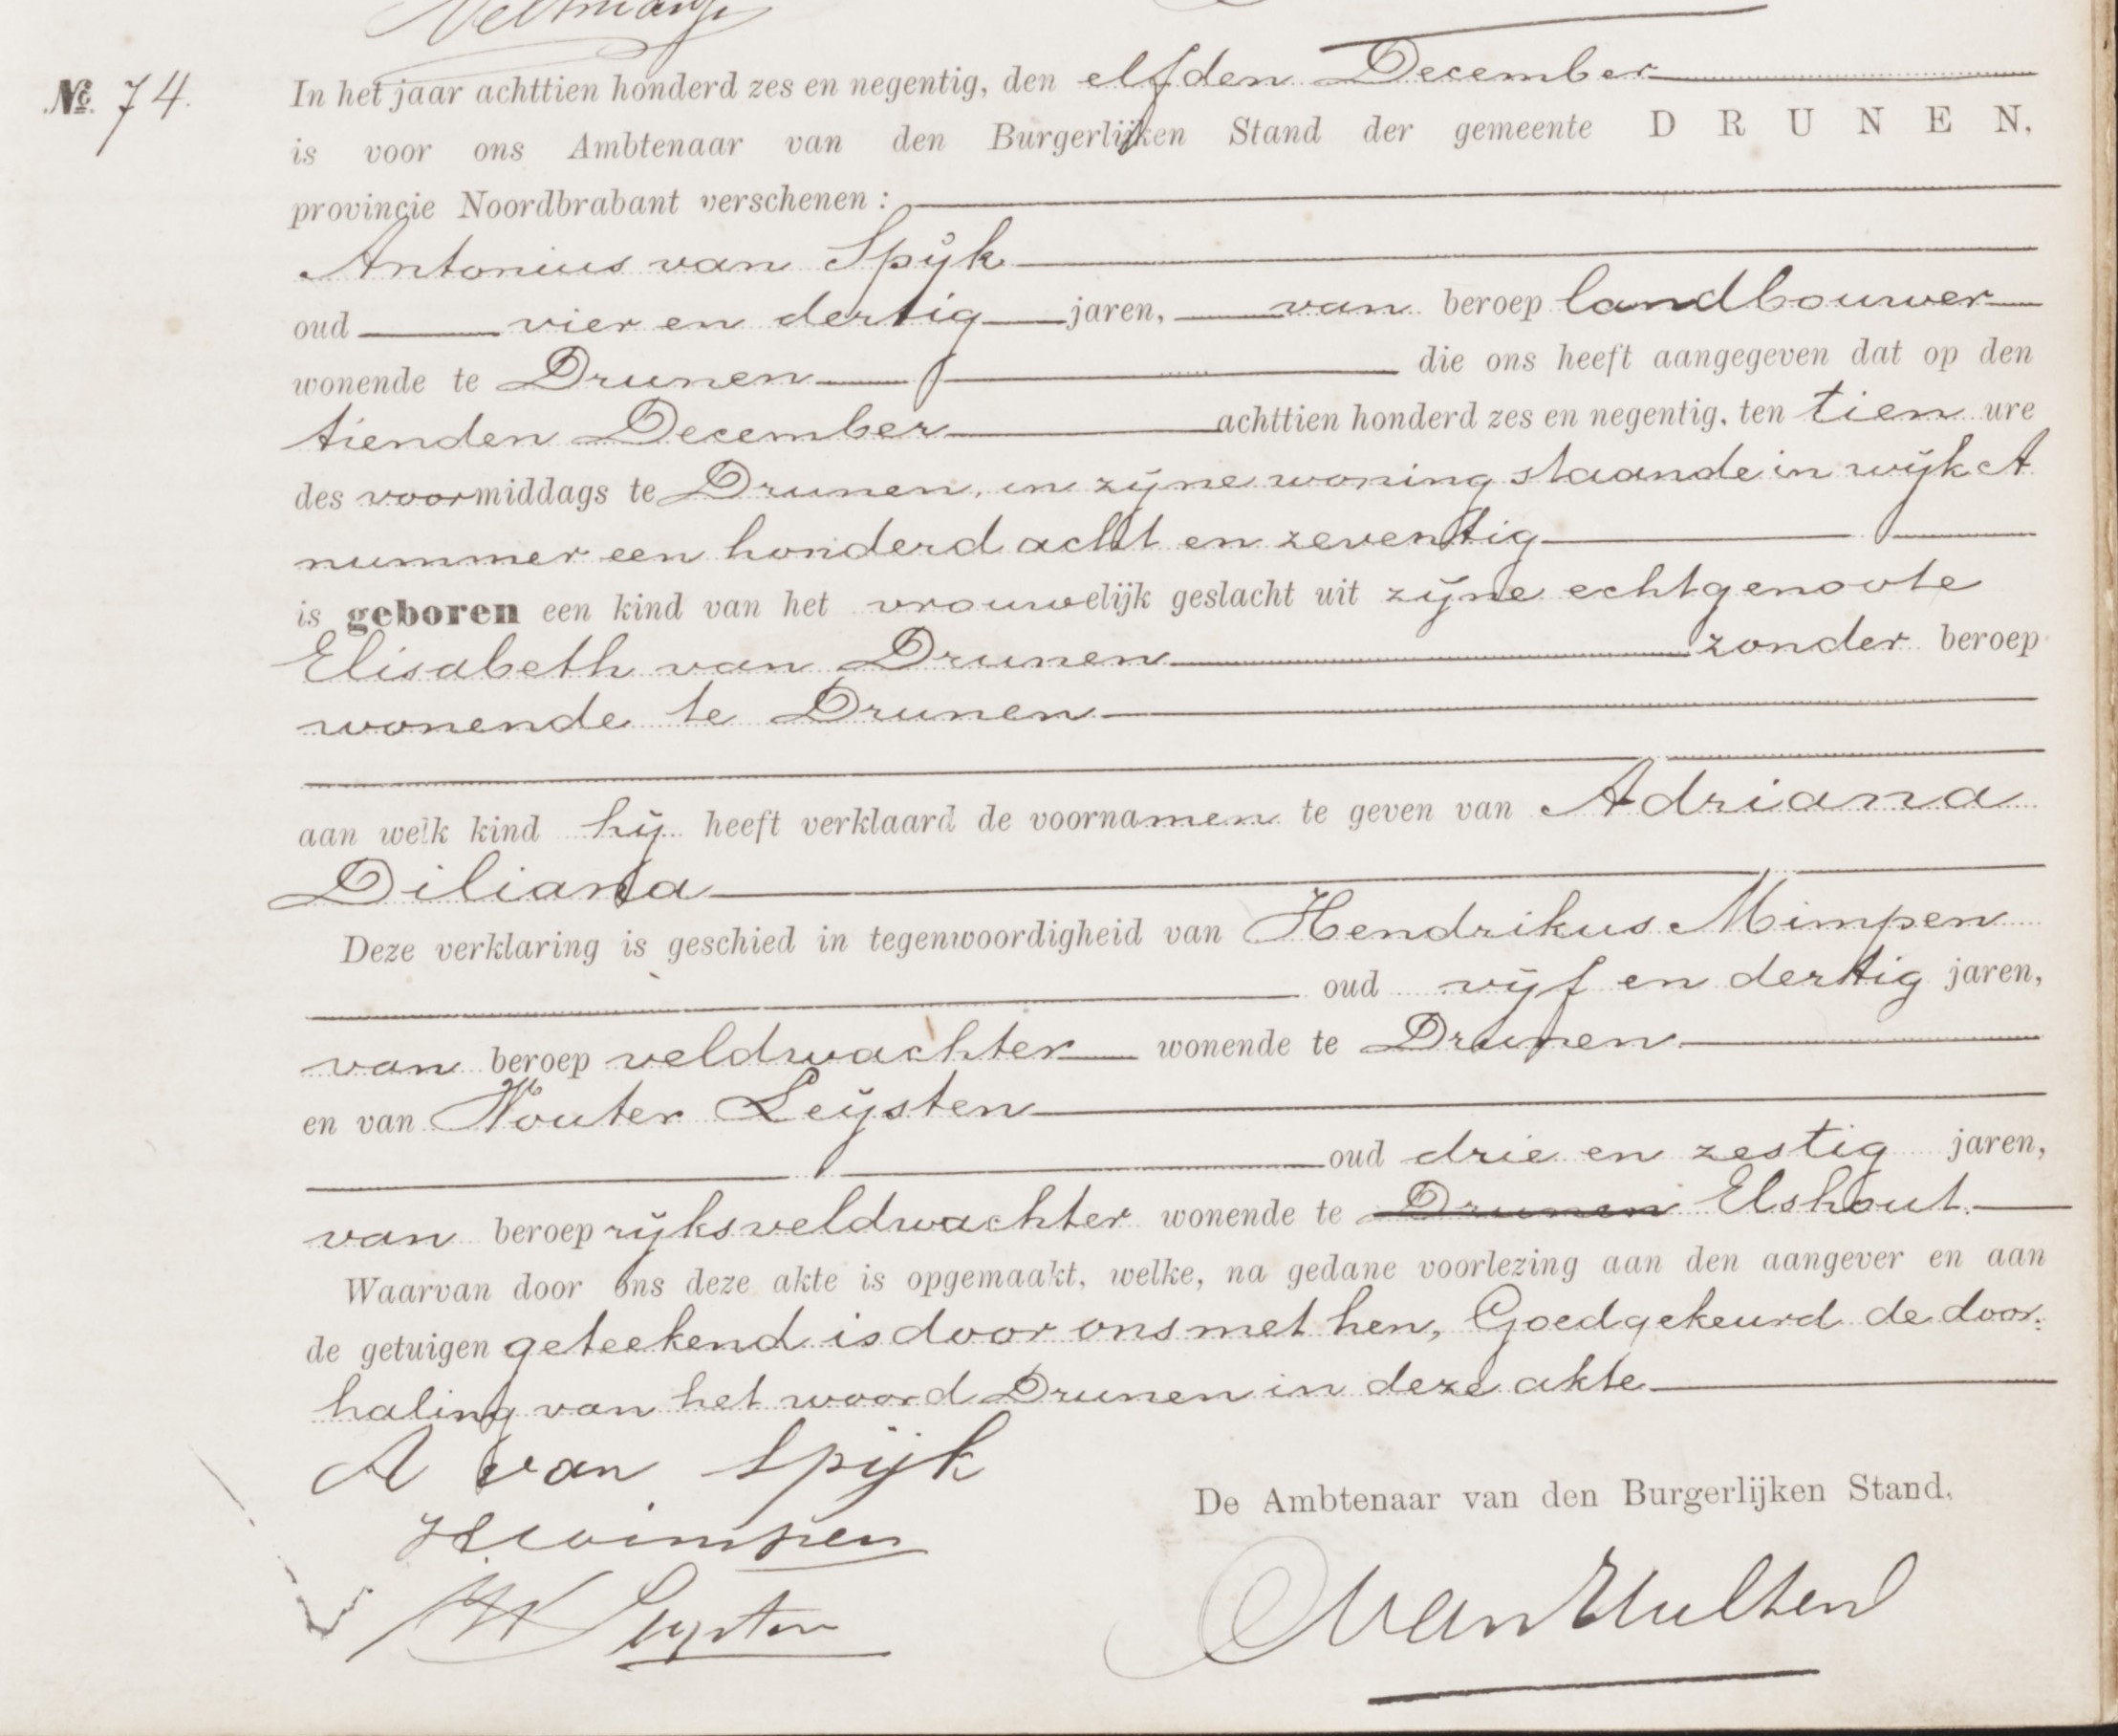 Veltman
№ 74.
In het jaar achttien honderd zes en negentig, den elfden December
is voor ons Ambtenaar van den Burgerlijken Stand der gemeente DRUNEN,
provincie Noordbrabant verschenen :
Antonius van Spijk
oud vier en dertig jaren, van beroep landbouwer
wonende te Drunen die ons heeft aangegeven dat op den
tienden December achttien honderd zes en negentig, ten tien ure
des voormiddags te Drunen, in zijne woning staande in wijk A
nummer een honderd acht en zeventig
is geboren een kind van het vrouwelijk geslacht uit zijne echtgenoote
Elisabeth van Drunen zonder beroep
wonende te Drunen
aan welk kind hij heeft verklaard de voornamen te geven van Adriana
Diliana
Deze verklaring is geschied in tegenwoordigheid van Hendrikus Mimpen
oud vijf en dertig jaren,
van beroep veldwachter wonende te Drunen
en van Wouter Leijsten
oud drie en zestig jaren,
van beroep rijksveldwachter wonende te Drunen Elshout.
Waarvan door ons deze akte is opgemaakt, welke, na gedane voorlezing aan den aangever en aan
de getuigen geteekend is door ons met hen, Goedgekeurd de door-
haling van het woord Drunen in deze akte
A van Spijk
H Mimpen
W Leijsten
De Ambtenaar van den Burgerlijken Stand,
van Hulten